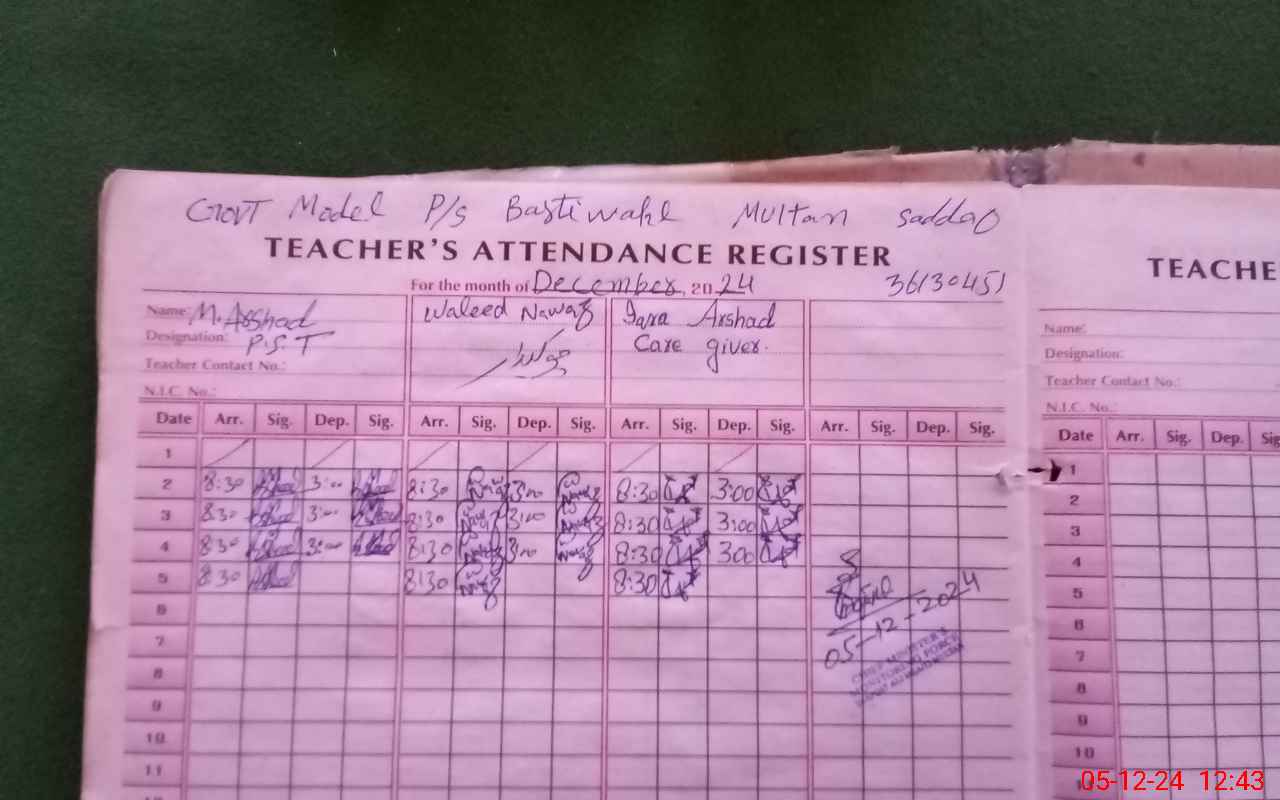 Govt Model P/s Bastiwahl Multan Saddar
TEACHER'S ATTENDANCE REGISTER
TEACHE
For the month of December, 2024
36130451
Name: M. Arshad
Designation: P.S.T
Teacher Contact No.:
N.I.C. No.:
Waleed Nawaz
Arshad
Care giver.
Name:
Designation:
Teacher Contact No.:
N.I.C. No.:
Date Arr. Sig. Dep. Sig. Arr. Sig. Dep. Sig. Arr. Sig. Dep. Sig. Arr. Sig. Dep. Sig.
1
2 8:30 3:00 8:30 3:00 8:30 3:00
3 8:30 3:00 8:30 3:00 8:30 3:00
4 8:30 3:00 8:30 3:00 8:30 300
5 8:30 8:30 8:30
6
7
8
9
10
11
05-12-2024
CHIEF MINISTER'S
MONITORING FORCE
Date Arr. Sig. Dep. Sig
1
2
3
4
5
6
7
8
9
10
05-12-24 12:43